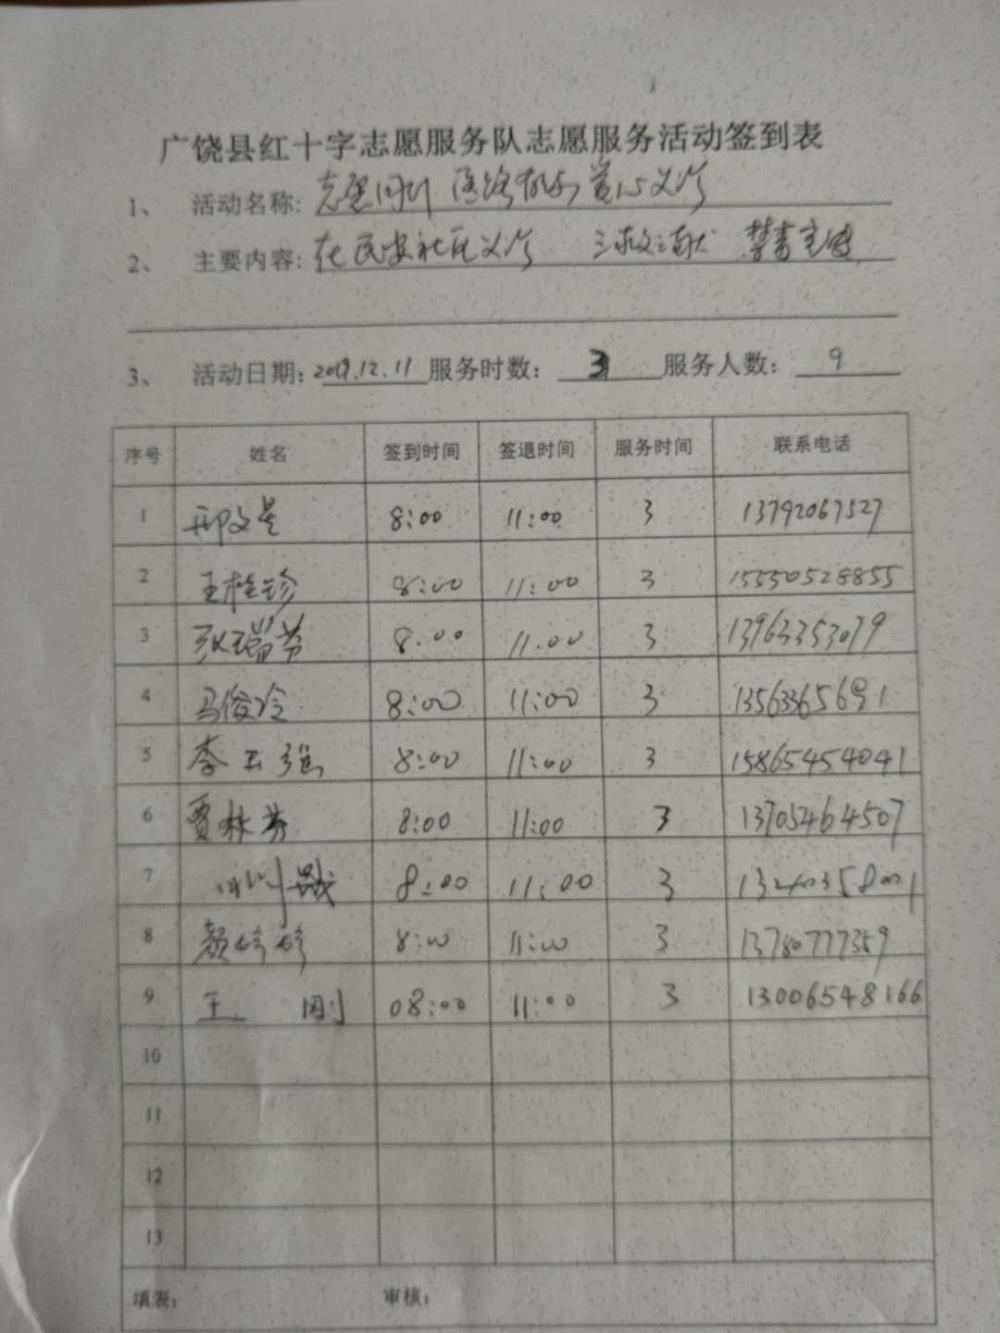 广饶县红十字志愿服务队志愿服务活动签到表
1、 活动名称: 志愿同行 医路有尔 爱心义诊
2、 主要内容: 在民安社区义诊 三救三献 禁毒宣传
3、 活动日期: 2019.12.11 服务时数: 3 服务人数: 9
序号 姓名 签到时间 签退时间 服务时间 联系电话
1 邢文星 8:00 11:00 3 13792067527
2 王桂珍 8:00 11:00 3 15550528855
3 张瑞芳 8:00 11:00 3 13963353079
4 马俊玲 8:00 11:00 3 13563365691
5 李玉强 8:00 11:00 3 15865454041
6 贾林芬 8:00 11:00 3 13705464507
7 8:00 11:00 3
8 颜婷婷 8:00 11:00 3 13780777359
9 王刚 08:00 11:00 3 13006548166
10
11
12
13
填表: 审核: